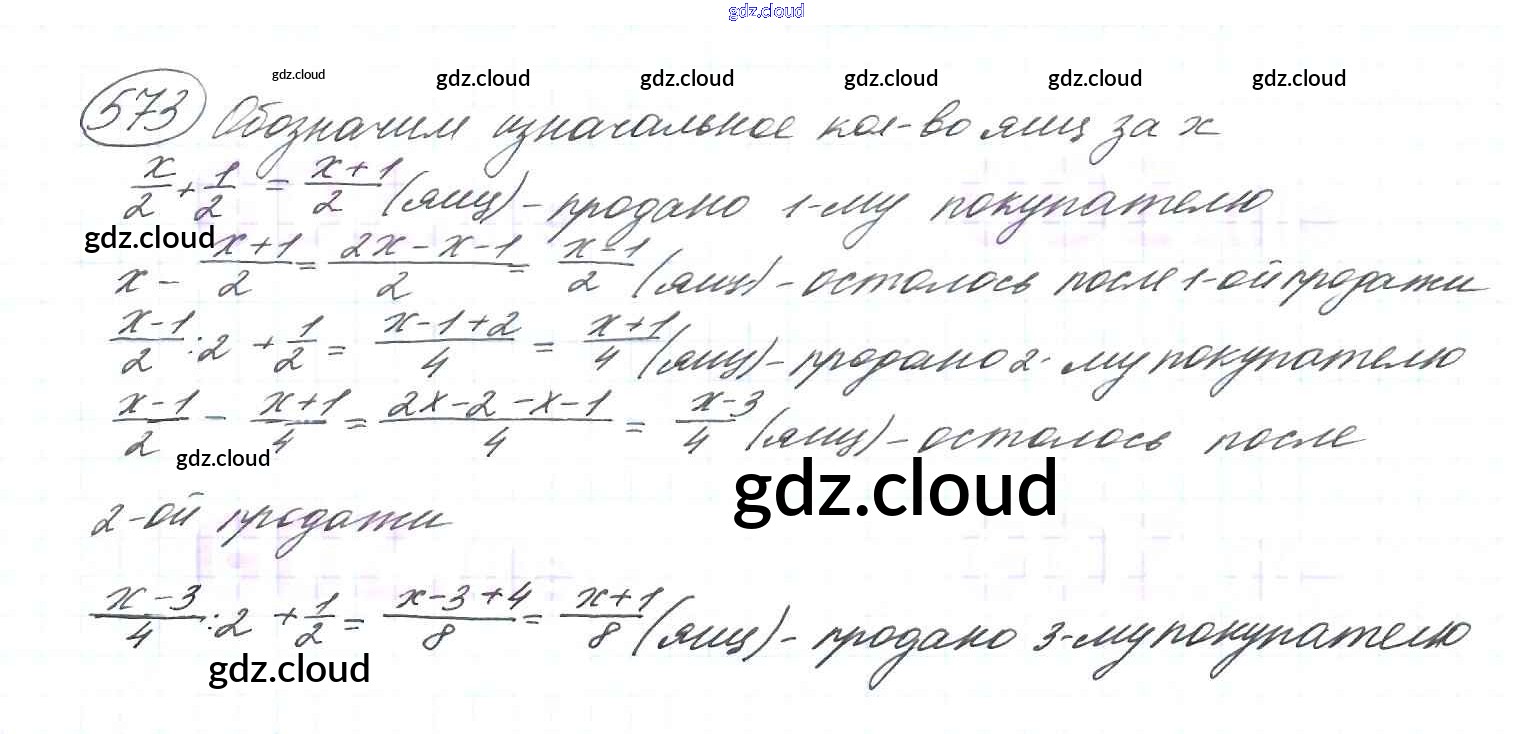 gdz.cloud
gdz.cloud gdz.cloud gdz.cloud gdz.cloud gdz.cloud gdz.cloud
573 Обозначим изначальное кол-во яиц за x
x/2 + 1/2 = (x+1)/2 (яиц) - продано 1-му покупателю
gdz.cloud
x - (x+1)/2 = (2x-x-1)/2 = (x-1)/2 (яиц) - осталось после 1-ой продажи
(x-1)/2 : 2 + 1/2 = (x-1+2)/4 = (x+1)/4 (яиц) - продано 2-му покупателю
(x-1)/2 - (x+1)/4 = (2x-2-x-1)/4 = (x-3)/4 (яиц) - осталось после
gdz.cloud
gdz.cloud
2-ой продажи
(x-3)/4 : 2 + 1/2 = (x-3+4)/8 = (x+1)/8 (яиц) - продано 3-му покупателю
gdz.cloud